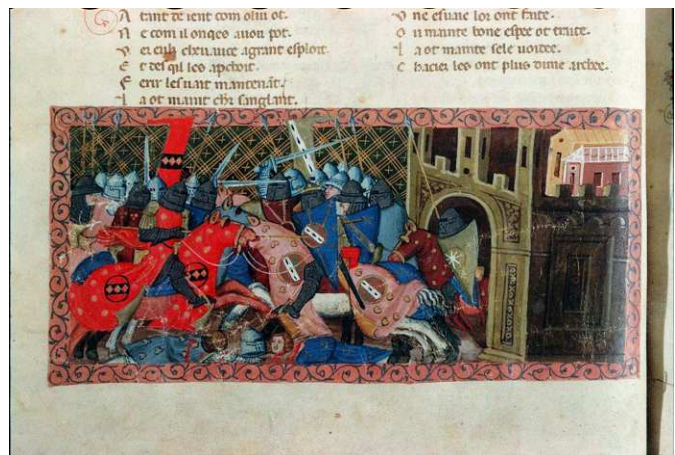 A tant de ient com o lui ot.
N e com il onqes pot.
cheuauce agrant esploit.
E t des qil les apchoit.
F erir les uait mantenāt.
L a ot maint chr sanglant.
ont faite.
O u mainte bone espee ot traite.
L a ot mainte sele uoidee.
C hacier les ont plus dune archee.